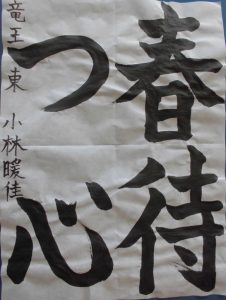 春待
つ心
竜王東 小林暖佳